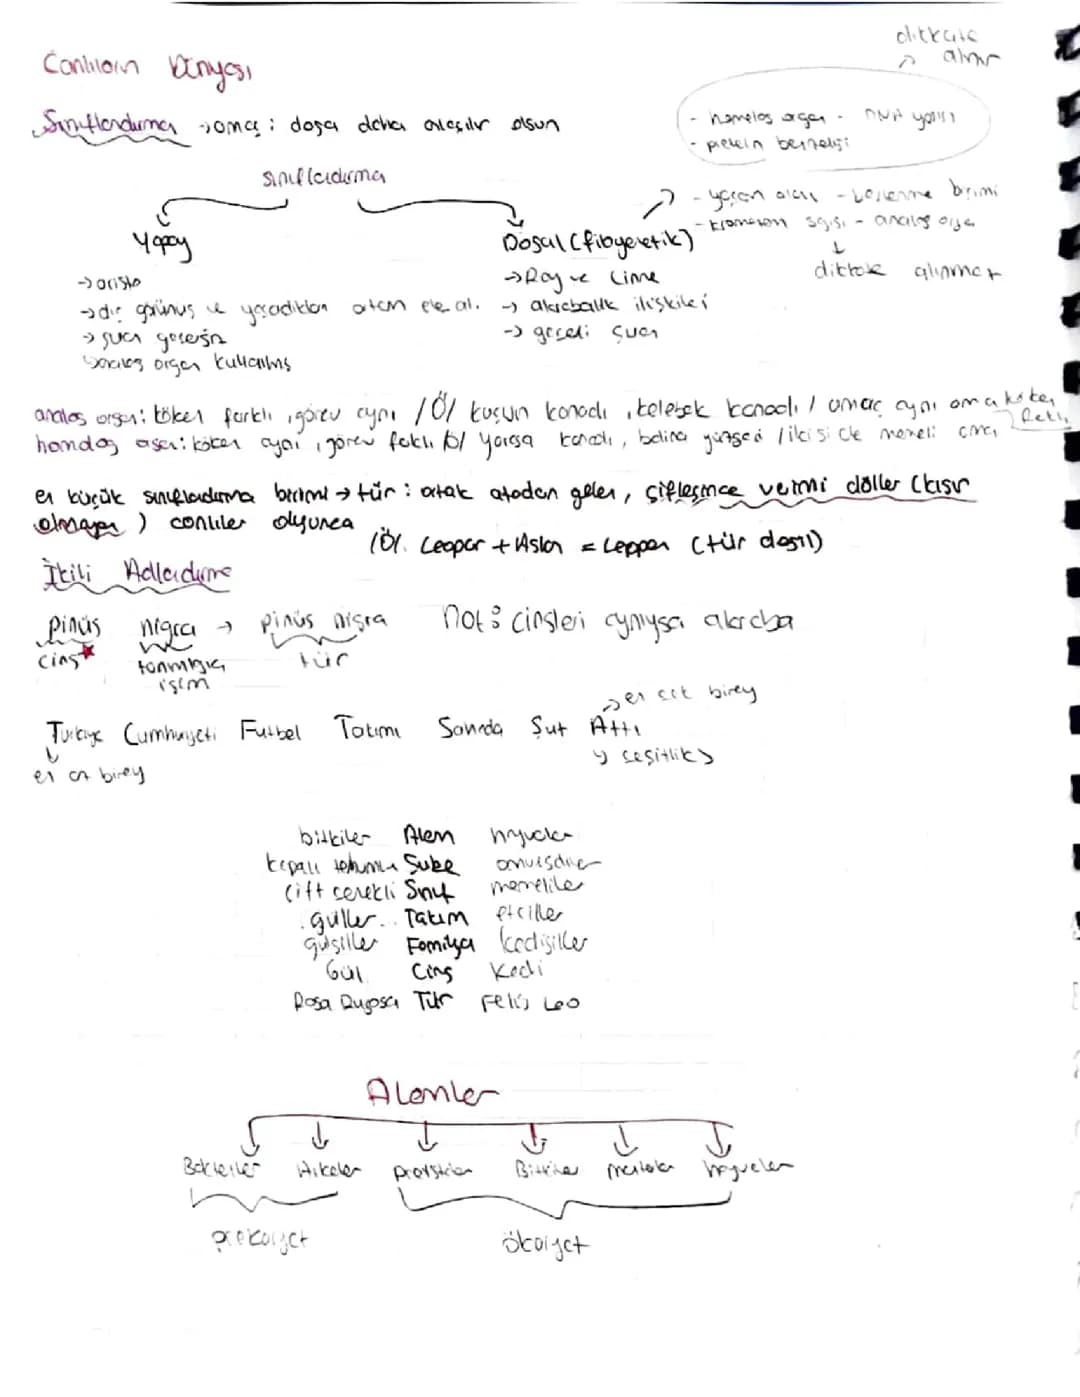 Canlıların Dünyası
dikkate
alınır
Sınıflandırma → amaç : doğa daha anlaşılır olsun
- homolog organ - DNA yapısı
- protein benzerliği
sınıflandırma
- yaşam alanı - beslenme biçimi
- kromozom sayısı - analog organ
↓
dikkate alınmaz
Yapay
Doğal (filogenetik)
→ aristo
→ Ray ve Linne
→ dış görünüş ve yaşadıkları ortam ele al.
→ akrabalık ilişkileri
→ şuan geçersiz
→ geçerli şuan
analog organ kullanılmış
analog organ: köken farklı, görev aynı /Ö/ kuşun kanadı, kelebek kanadı / amaç aynı ama köken farklı
homolog organ: köken aynı, görev farklı /Ö/ yarasa kanadı, balina yüzgeci / ikisi de memeli ama
en küçük sınıflandırma birimi → tür : ortak atadan gelen, çiftleşince verimli döller (kısır
olmayan) canlılar oluşturan
/Ö/. Leopar + Aslan = Leppon (tür değil)
İkili Adlandırma
pinüs nigra → pinüs nigra
not : cinsleri aynıysa akraba
cins★ tanımlayıcı isim tür
→ en çok birey
Türkiye Cumhuriyeti Futbol Takımı Sahada Şut Attı
↓
en az birey
↳ çeşitlilik>
bitkiler Alem hayvanlar
kapalı tohumlu Şube omurgalılar
çift çenekli Sınıf memeliler
güller.. Takım etciller
gülgiller Familya kedigiller
Gül Cins Kedi
Rosa Rugosa Tür Felis Leo
Alemler
Bakteriler Arkeler protistler Bitkiler mantarlar hayvanlar
prokaryot ökaryot